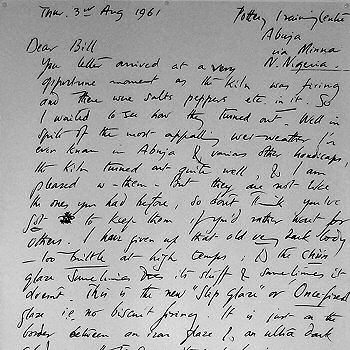 Thur. 3rd Aug 1961
Pottery Training Centre
Abuja
via Minna
N. Nigeria
Dear Bill
You letter arrived at a very
opportune moment as the kiln was firing
and there were salts peppers etc in it. So
I waited to see how they turned out. Well in
spite of the most appalling wet-weather I've
ever known in Abuja & various other handicaps,
the kiln turned out quite well, & I am
pleased w- them. But they are not like
the ones you had before, so don't think you've
got to keep them if you'd rather wait for
others. I have given up that old very dark body
- too brittle at high temps; & the chün
glaze sometimes does its stuff & sometimes it
doesnt. This is the new "Slip Glaze" or Oncefired
glaze i.e. no biscuit firing. It is just on the
border between an iron glaze & an ultra dark